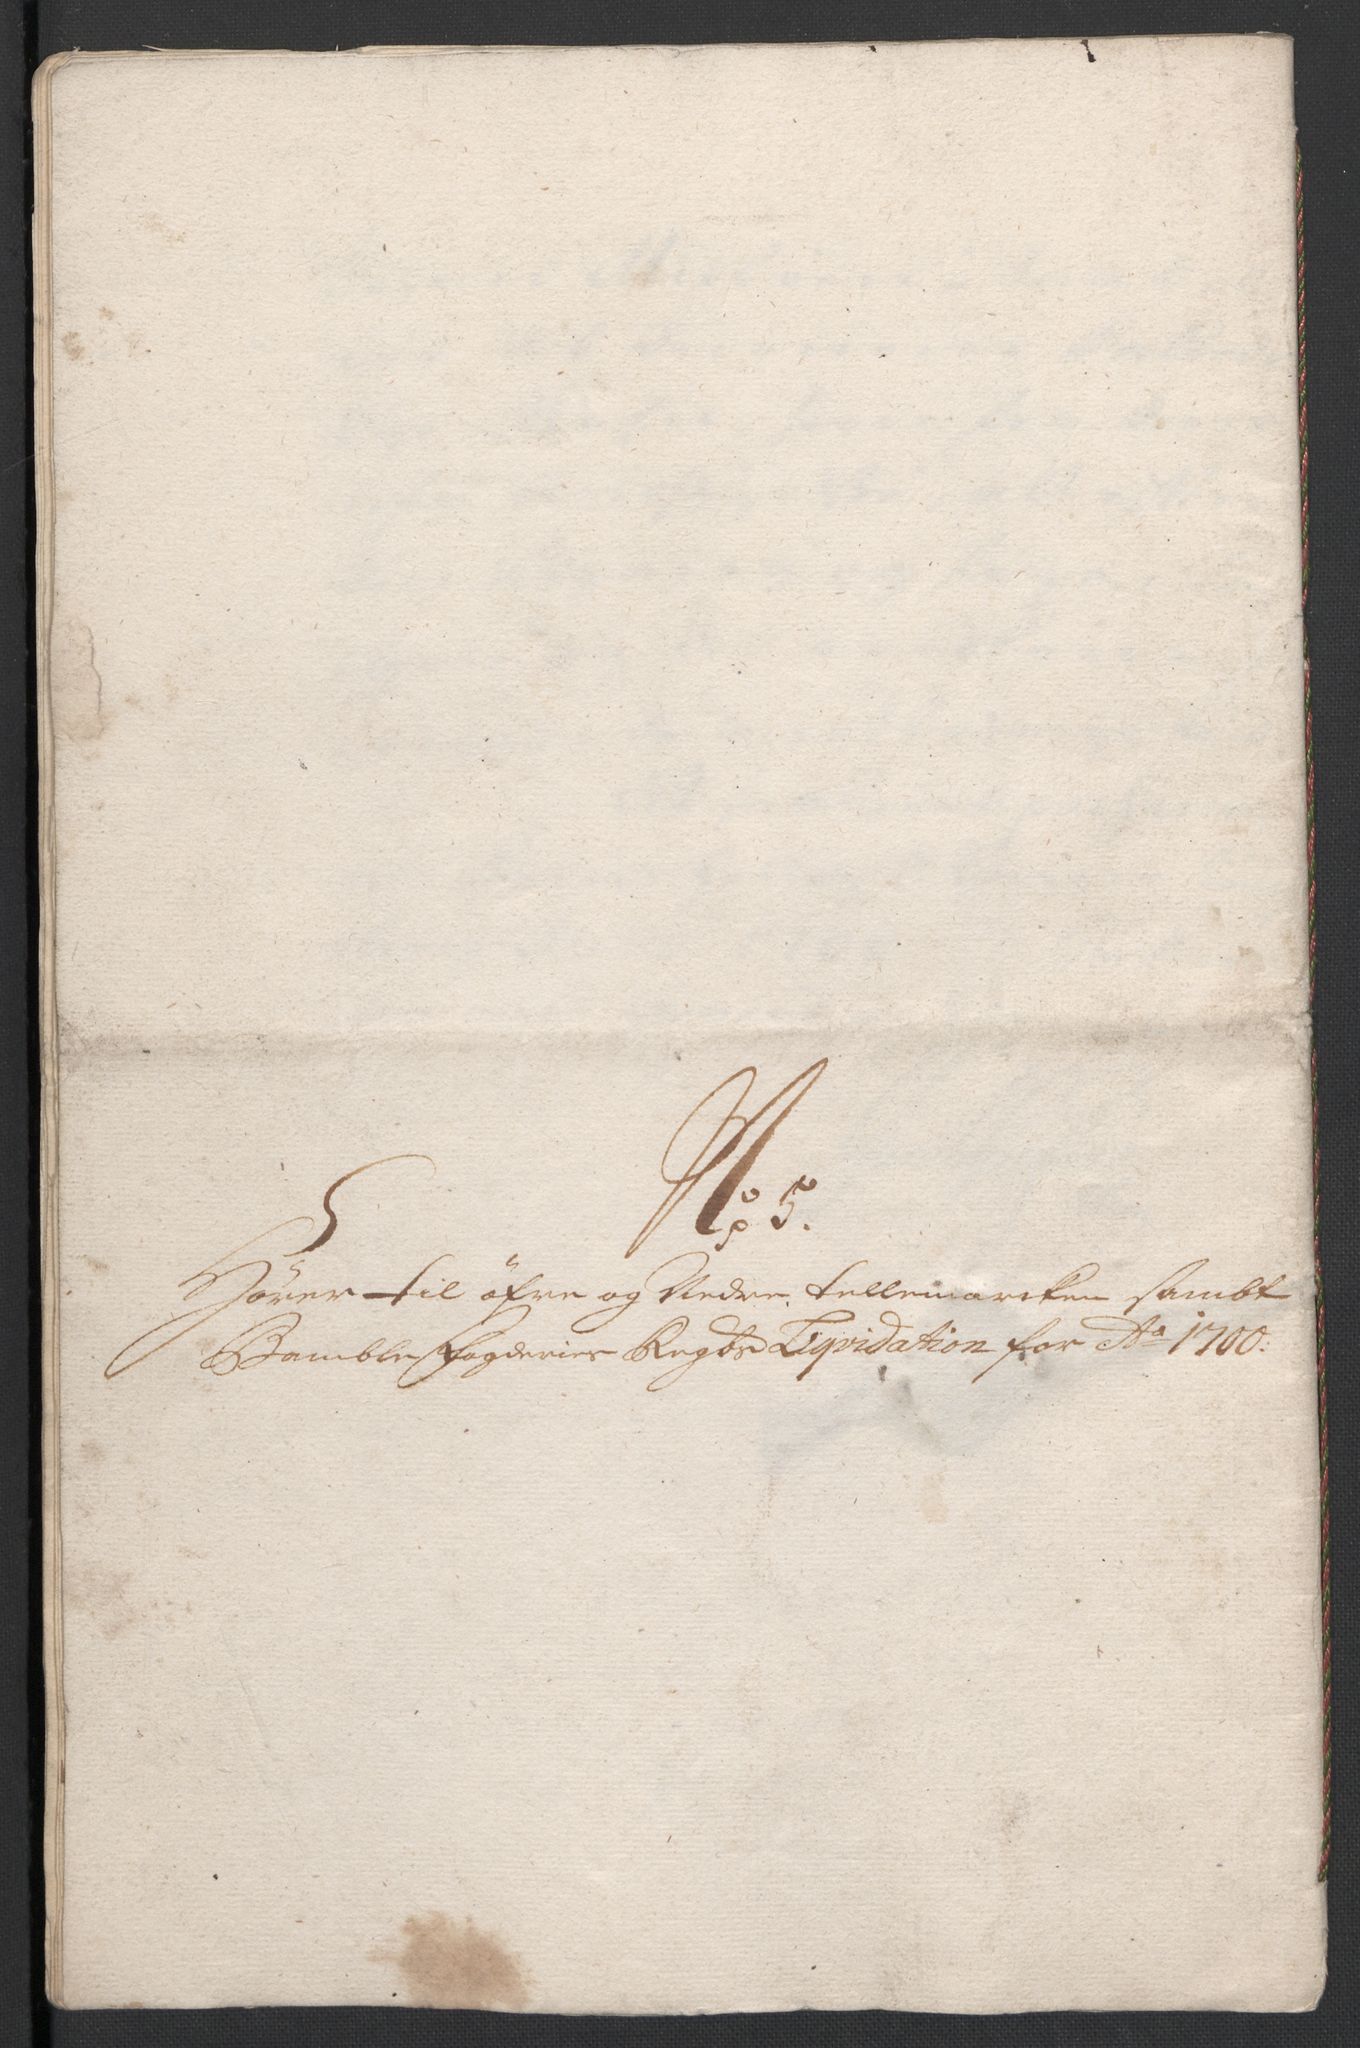 No 5.
Hörer til öfre og Nedre tellemarcken sambt
Bamble fogderies Regbs Liqvidation for Ao 1700.